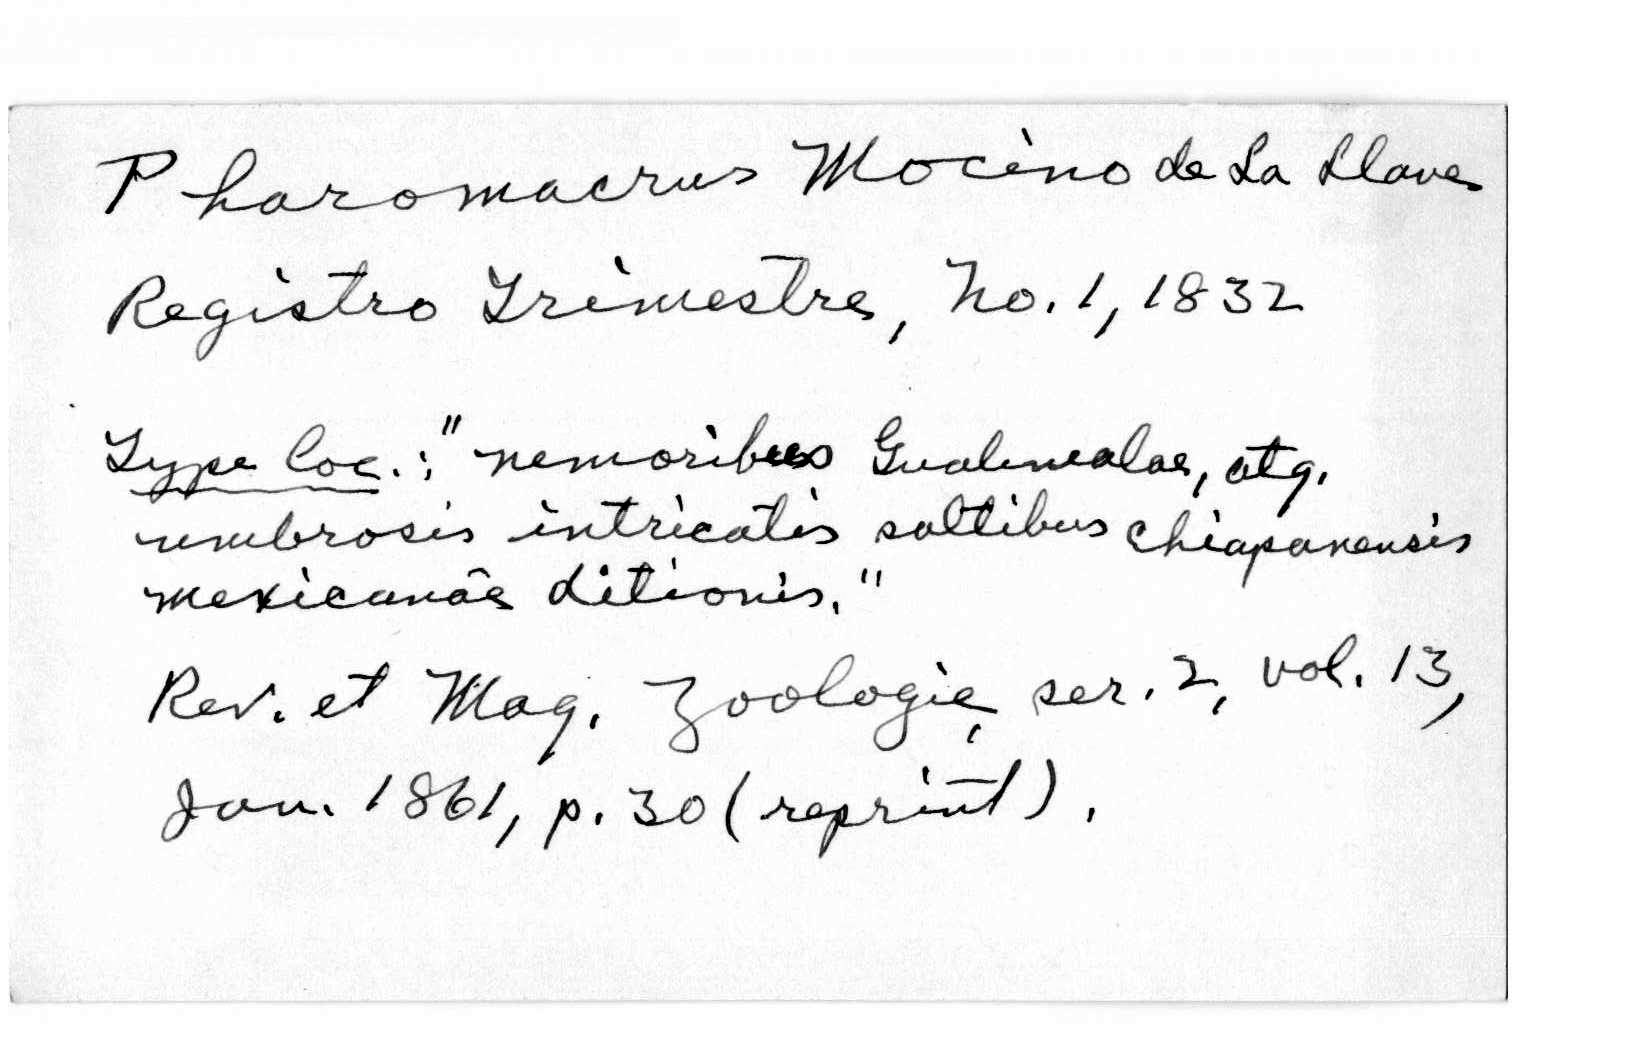 Pharomacrus Mocino de La Llave
Registro Trimestre, No. 1, 1832
Type loc.: "nemoribus Guatemalae, atq.
umbrosis intricatis saltibus chiapanensis
mexicanae ditionis."
Rev. et Mag. Zoologie, ser. 2, vol. 13,
Jan. 1861, p. 30 (reprint).